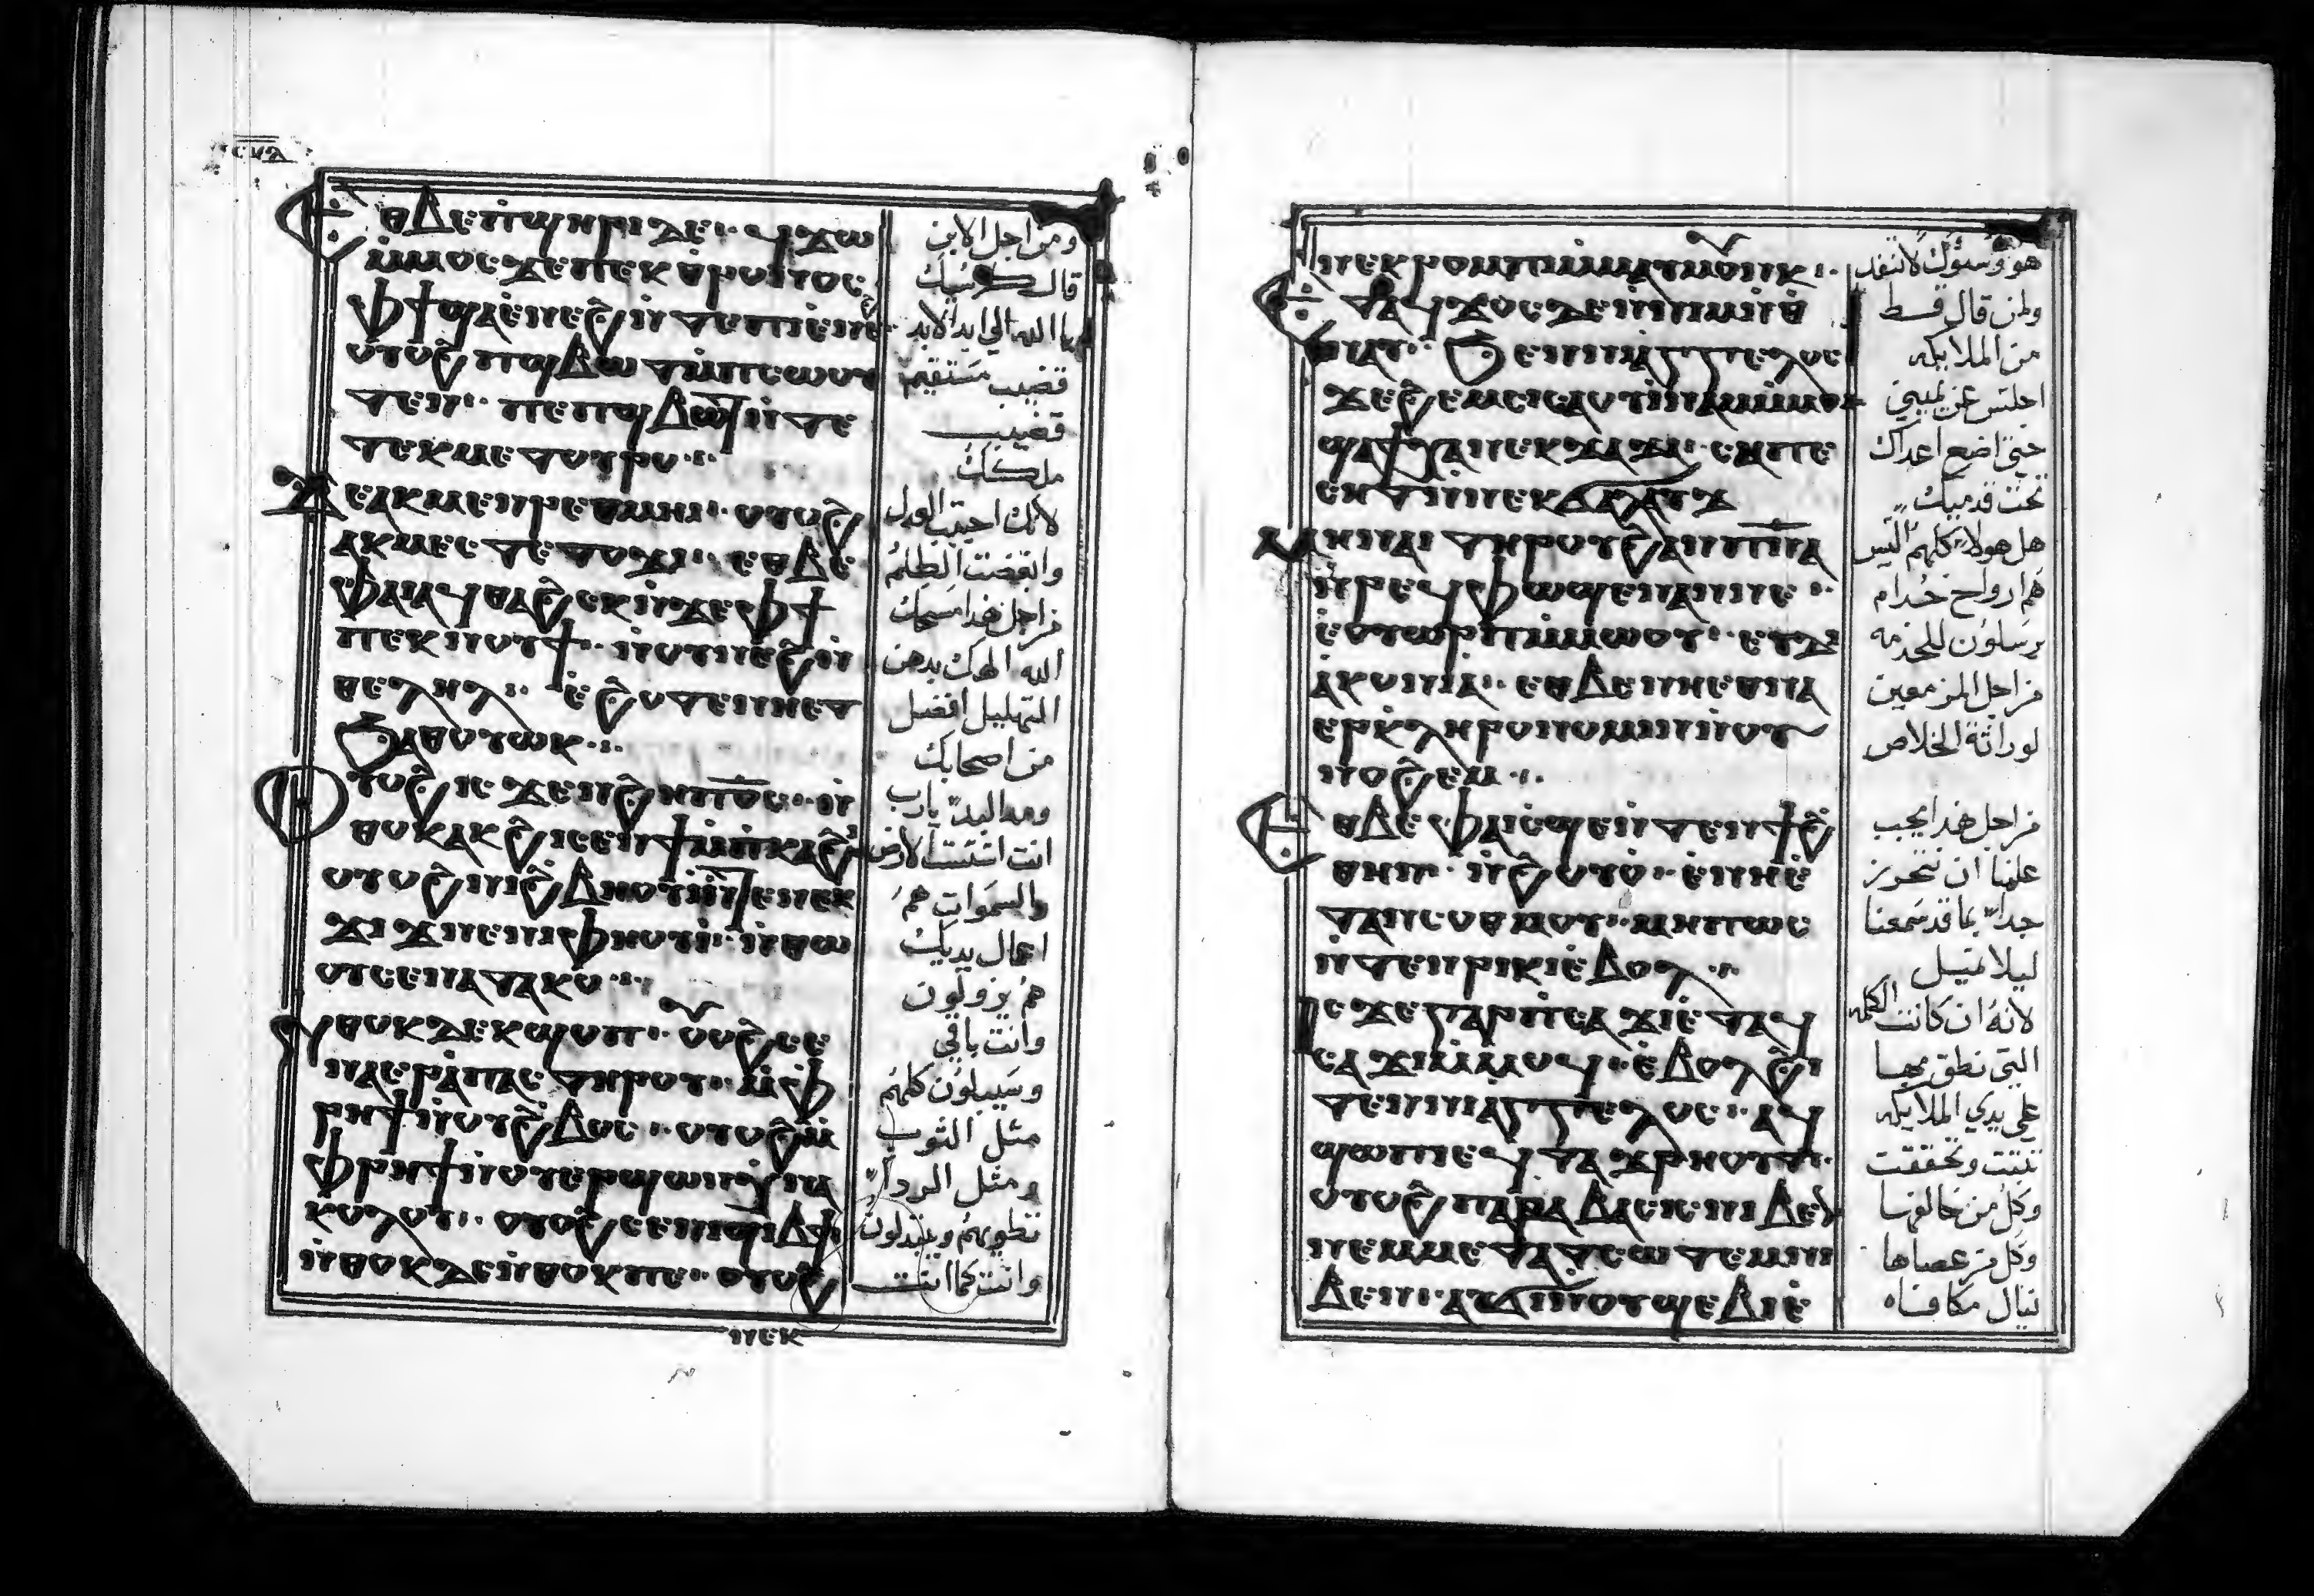 Ⲉⲑⲃⲉ ⲡϣⲏⲣⲓ ⲇⲉ · ϥϫⲱ
ⲙ̇ⲙⲟⲥ ϫⲉ ⲡⲉⲕⲑ̇ⲣⲟⲛⲟⲥ
ⲫϯ ϣⲁ ⲉ̇ⲛⲉϩ ⲛ̇ⲧⲉ ⲡⲓⲉ̇ⲛⲉϩ ·
ⲟⲩⲟϩ ⲡϣⲃⲱⲧ ⲙ̇ⲡⲥⲱⲟⲩ
ⲧⲉⲛ · ⲡⲉ ⲡϣⲃⲱⲧ ⲛ̇ⲧⲉ
ⲧⲉⲕⲙⲉⲧⲟⲩⲣⲟ ⁘
Ⲁⲕⲙⲉⲛⲣⲉ ⲑⲙⲏⲓ · ⲟⲩⲟϩ
ⲁⲕⲙⲉⲥⲧⲉ ⲧⲟϫⲓ · ⲉⲑⲃⲉ
ⲫⲁⲓ ⲁϥⲑⲁϩⲥⲕ ⲛ̇ϫⲉ ⲫϯ
ⲡⲉⲕⲛⲟⲩϯ · ⲛ̇ⲟⲩⲛⲉϩ ⲛ̇
ⲑⲉⲗⲏⲗ · ⲉ̇ϩⲟⲧⲉ ⲛⲏⲉⲧ
ϧⲁⲑⲟⲩⲱⲕ ⁘
Ⲟⲩⲟϩ ⲓⲥϫⲉⲛ ϩⲏ ⲡⲟ̅ⲥ̅ · ⲛ̇
ⲑⲟⲕ ⲁⲕϩⲓⲥⲉⲛϯ ⲙ̇ⲡⲕⲁϩⲓ
ⲟⲩⲟϩ ⲛⲓϩⲃⲏⲟⲩⲓ̇ ⲛ̇ⲧⲉ ⲛⲉⲕ
ϫⲓϫ ⲛⲉ ⲛⲓⲫⲏⲟⲩⲓ̇ · ⲛ̇ⲑⲱ
ⲟⲩ ⲥⲉⲛⲁⲧⲁⲕⲟ ⁘
ⲛ̇ⲑⲟⲕ ⲇⲉ ⲕϣⲟⲡ · ⲟⲩⲟϩ ⲥⲉ
ⲛⲁⲉⲣⲁ̇ⲡⲁⲥ ⲧⲏⲣⲟⲩ · ⲙ̇ⲫ
ⲣⲏϯ ⲛ̇ⲟⲩϩ̇ⲃⲟⲥ · ⲟⲩⲟϩ ⲙ̇
ⲫⲣⲏϯ ⲛ̇ⲟⲩⲉⲣϣⲱⲛ ⲭ̇ⲛⲁ
ⲕⲟⲗⲟⲩ · ⲟⲩⲟϩ ⲥⲉⲛⲁϣⲓⲃϯ
ⲛ̇ⲑⲟⲕ ⲇⲉ ⲛ̇ⲑⲟⲕ ⲡⲉ · ⲟⲩⲟϩ
ⲛⲉⲕ
ومن اجل الابن
قال كرسيك
يا الله الى ابد الابد
قضيب مستقيم
قضيب
ملكك
لانك احببت العدل
وابغضت الظلم
من اجل هذا مسحك
الله الهك بدهن
التهليل افضل
من اصحابك
ومن البدء يارب
انت اسست الارض
والسموات هم
اعمال يديك
هم يزولون
وانت باقي
وسيبلون كلهم
مثل الثوب
ومثل الرداء
تطويهم ويتبدلون
وانت كما انت
ⲛⲉⲕⲣⲟⲙⲡⲓ ⲙ̇ⲙⲁⲩⲙⲟⲩⲛⲕ ⁘
Ⲉⲧⲁϥϫⲟⲥ ⲇⲉ ⲛ̇ⲛⲓⲙ ⲛ̇ⲑ
ⲛⲁⲩ · ϧⲉⲛ ⲛⲓⲁ̇ⲅⲅⲉⲗⲟⲥ
ϫⲉ ϩⲉⲙⲥⲓ ⲥⲁⲟⲩⲓ̇ⲛⲁⲙ ⲙ̇ⲙⲟⲓ
ϣⲁϯⲭⲁ ⲛⲉⲕϫⲁϫⲓ · ⲥⲁⲡⲉ
ⲥⲏⲧ ⲛ̇ⲛⲉⲕϭⲁⲗⲁⲩϫ
ⲙⲏ ⲛⲁⲓ ⲧⲏⲣⲟⲩ ϩⲁⲛⲡ̅ⲛ̅ⲁ̅
ⲛ̇ⲣⲉϥⲫϣⲉⲛ ⲁⲛ ⲛⲉ ⁘
ⲉ̇ⲟⲩⲱⲣⲡ ⲙ̇ⲙⲱⲟⲩ · ⲉⲩⲇⲓ
ⲁ̇ⲕⲟⲛⲓⲁ · ⲉⲑⲃⲉ ⲛⲏⲉⲑⲛⲁ
ⲉⲣⲕ̇ⲗⲏⲣⲟⲛⲟⲙⲓⲛ ⲛ̇ⲟⲩ
ⲛⲟϩⲉⲙ ⁘
Ⲉⲑⲃⲉ ⲫⲁⲓ ⲥ̇ϣⲉ ⲛ̇ⲧⲉⲛϯϩ̇
ⲑⲏⲛ · ⲛ̇ϩⲟⲩⲟ̇ · ⲉ̇ⲛⲏⲉ̇
ⲧⲁⲛⲥⲟⲑⲙⲟⲩ · ⲙⲏⲡⲱⲥ
ⲛ̇ⲧⲉⲛⲣⲓⲕⲓ ⲉ̇ⲃⲟⲗ ⁘
Ⲓⲥϫⲉ ⲅⲁⲣ ⲡⲥⲁϫⲓ ⲉ̇ⲧⲁⲩ
ⲥⲁϫⲓ ⲙ̇ⲙⲟϥ · ⲉ̇ⲃⲟⲗ ϩⲓ
ⲧⲉⲛ ⲛⲓⲁ̇ⲅⲅⲉⲗⲟⲥ · ⲁϥ
ϣⲱⲡⲓ ⲉϥⲧⲁϫⲣⲏⲟⲩⲧ ·
ⲟⲩⲟϩ ⲡⲁⲣⲁⲃⲁⲥⲓⲥ ⲛⲓⲃⲉⲛ
ⲛⲉⲙ ⲙⲉⲧⲁⲧⲥⲱⲧⲉⲙ ⲛⲓ
ⲃⲉⲛ · ⲁⲩϭⲓ ⲛ̇ⲟⲩϣⲉⲃⲓⲉ̇
هو وسنوك لا تنفد
ولمن قال قط
من الملايكه
اجلس عن يميني
حتى اضع اعداك
تحت قدميك
هل هولاء كلهم اليس
هم ارواح خدام
يرسلون للخدمه
من اجل المزمعين
لوراثة الخلاص
من اجل هذا يجب
علينا ان نتحرز
جداً بما قد سمعنا
ليلا نميل
لانه ان كانت الكلمه
التي نطق بها
على يدي الملايكه
ثبتت وتحققت
وكل من خالفها
وكل من عصاها
ينال مكافاه